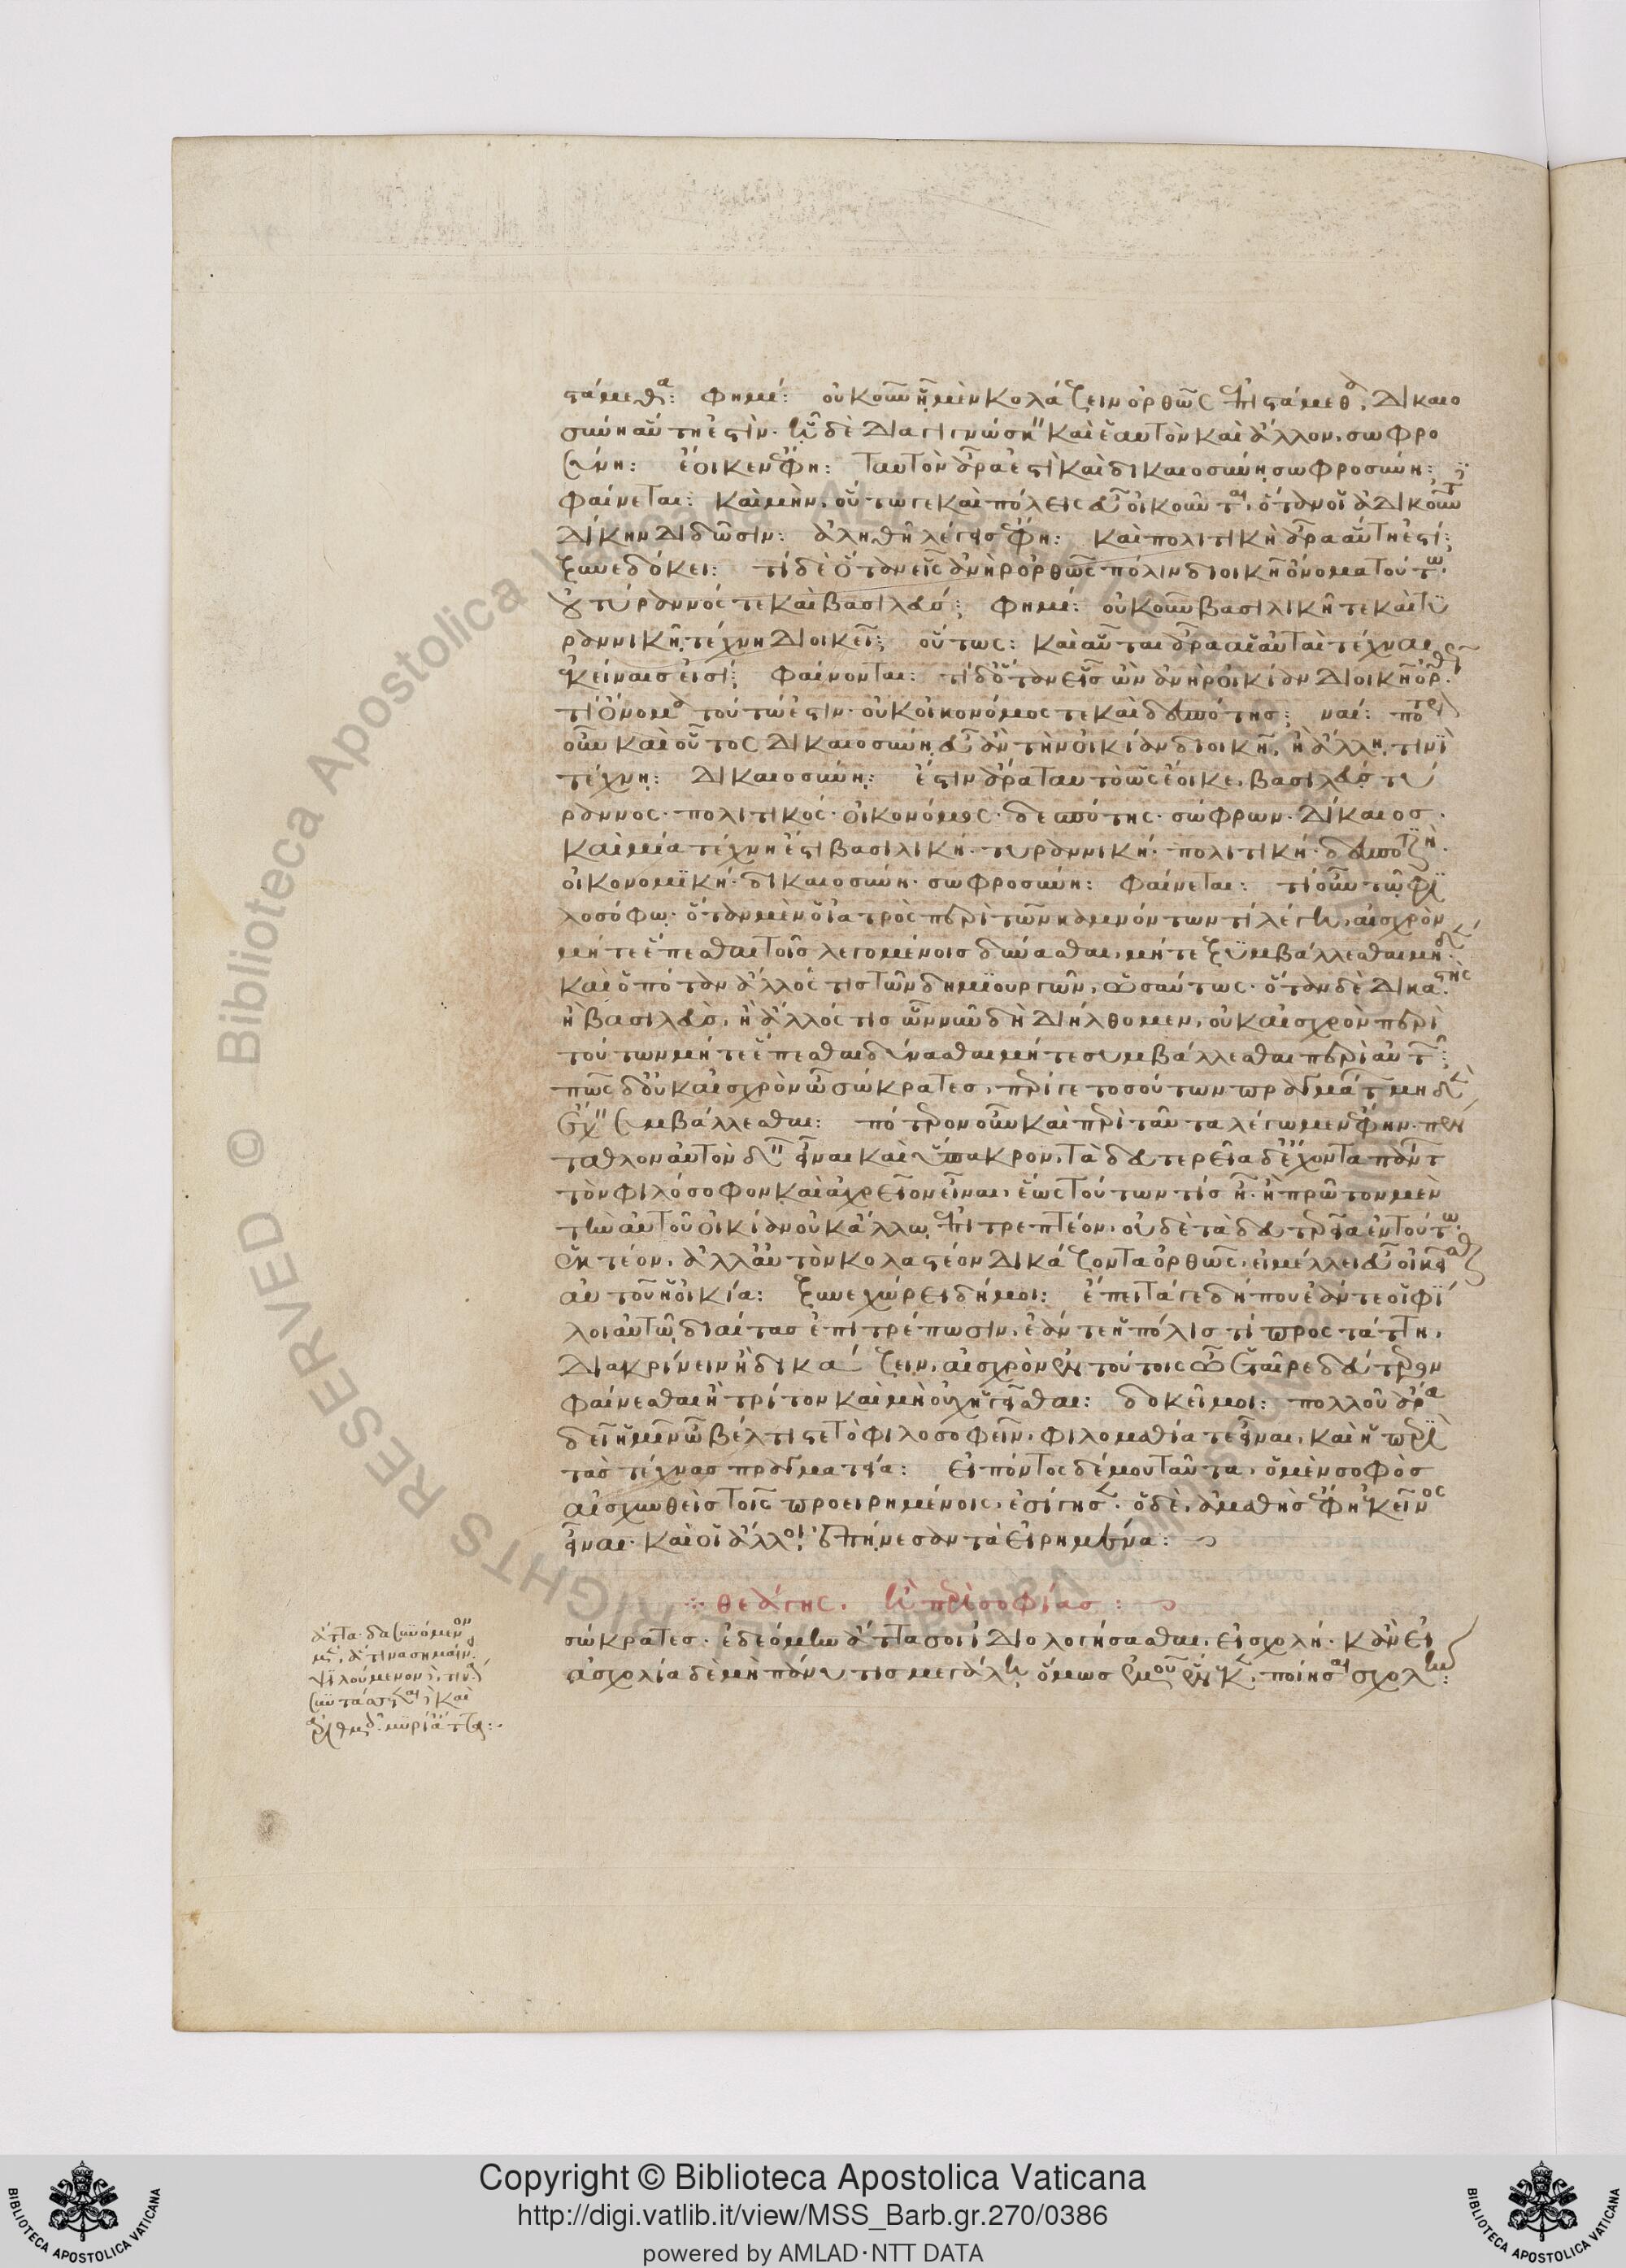 στάμεθα: φημί: οὐκοῦν ᾗ μὲν κολάζειν ὀρθῶς ἐπιστάμεθα, δικαιο
σύνη αὕτη ἐστίν· ᾗ δὲ διαγιγνώσκειν καὶ ἑαυτὸν καὶ ἄλλον, σωφρο
σύνη: ἔοικεν ἔφη: ταυτὸν ἄρα ἐστὶ καὶ δικαιοσύνη σωφροσύνη:
φαίνεται: καὶ μὴν, οὕτω γε καὶ πόλεις εὖ οἰκοῦνται, ὅταν οἱ ἀδικοῦντες
δίκην διδῶσιν: ἀληθῆ λέγεις ἔφη: καὶ πολιτικὴ ἄρα αὕτη ἐστί:
ξυνεδόκει: τί δὲ ὅταν εἷς ἀνὴρ ὀρθῶς πόλιν διοικῇ ὄνομα τούτῳ
οὐ τύραννός τε καὶ βασιλεύς; φημί: οὐκοῦν βασιλικῇ τε καὶ τυ
ραννικῇ τέχνῃ διοικεῖ; οὕτως: καὶ αὗται ἄρα αἱ αὐταὶ τέχναι
ἐκείναις εἰσί; φαίνονται: τί δὲ ὅταν εἷς ὢν ἀνὴρ οἰκίαν διοικῇ ὀρθῶς·
τί ὄνομα τούτῳ ἐστιν· οὐκ οἰκονόμος τε καὶ δεσπότης; ναί: πότερ
οὖν καὶ οὗτος δικαιοσύνῃ εὖ ἂν τὴν οἰκίαν διοικῇ, ἢ ἄλλῃ τινὶ
τέχνῃ: δικαιοσύνῃ: ἔστιν ἄρα ταυτὸ ὡς ἔοικε, βασιλεύς τύ
ραννος· πολιτικός· οἰκονόμος· δεσπότης· σώφρων· δίκαιος·
καὶ μία τέχνη ἐστὶ βασιλική· τυραννική· πολιτική· δεσποτική·
οἰκονομική· δικαιοσύνη· σωφροσύνη: φαίνεται: τί οὖν τῷ φι
λοσόφῳ· ὅταν μὲν ὁ ἰατρὸς περὶ τῶν καμνόντων τι λέγῃ, αἰσχρὸν
μήτε ἕπεσθαι τοῖς λεγομένοις δύνασθαι, μήτε ξυμβάλλεσθαι μηδέν·
καὶ ὁπόταν ἄλλός τις τῶν δημιουργῶν, ὡσαύτως· ὅταν δὲ δικαστὴς
ἢ βασιλεύς, ἢ ἄλλός τις ὧν νῦν δὴ διήλθομεν, οὐκ αἰσχρὸν περὶ
τούτων μήτε ἕπεσθαι δύνασθαι μήτε συμβάλλεσθαι περὶ αὐτῶν:
πῶς δ' οὐκ αἰσχρὸν ὦ σώκρατες, περί γε τοσούτων πραγμάτων μηδὲν
ἔχειν συμβάλλεσθαι: πότερον οὖν καὶ περὶ ταῦτα λέγωμεν ἔφην· πέν
ταθλον αὐτὸν δεῖν εἶναι καὶ ὕπακρον, τὰ δευτερεῖα δὲ ἔχοντα πάντων
τὸν φιλόσοφον καὶ ἀχρεῖον εἶναι, ἕως τούτων τίς ᾖ· ἢ πρῶτον μὲν
τὴν αὑτοῦ οἰκίαν οὐκ ἄλλῳ ἐπιτρεπτέον, οὐδὲ τὰ δευτερεῖα ἐν τούτῳ
ἑκτέον, ἀλλ' αὐτὸν κολαστέον δικάζοντα ὀρθῶς, εἰ μέλλει εὖ οἰκεῖσθαι
αὐτοῦ ἡ οἰκία: ξυνεχώρει δή μοι: ἔπειτά γε δήπου ἐάν τε οἱ φί
λοι αὐτῷ διαίτας ἐπιτρέπωσιν, ἐάν τε ἡ πόλις τι προστάττῃ,
διακρίνειν ἢ δικάζειν, αἰσχρὸν ἐν τούτοις ὦ ἑταῖρε δεύτερον
φαίνεσθαι ἢ τρίτον καὶ μὴ οὐχ ἡγεῖσθαι: δοκεῖ μοι: πολλοῦ ἄρα
δεῖ ἡμῖν ὦ βέλτιστε τὸ φιλοσοφεῖν, φιλομαθία τε εἶναι, καὶ ἡ περὶ
τὰς τέχνας πραγματεία: εἰπόντος δέ μου ταῦτα, ὁ μὲν σοφὸς
αἰσχυνθεὶς τοῖς προειρημένοις, ἐσίγησεν· ὁ δὲ, ἀμαθὴς ἔφη ἐκείνως
εἶναι· καὶ οἱ ἄλλοι ἐπῄνεσαν τὰ εἰρημένα:
θεάγης. ἢ περὶ σοφίας:
σώκρατες· ἐδεόμην ἄττα σοι ἰδιολογήσασθαι, εἰ σχολή· κἂν εἰ
ἀσχολία δὲ μὴ πάνυ τις μεγάλη, ὅμως ἐμοῦ ἕνεκα, ποίησαι σχολήν:
ἄττα· δασυνόμενον
μὲν, ἅτινα σημαίνει·
ψιλούμενον δὲ, τινά·